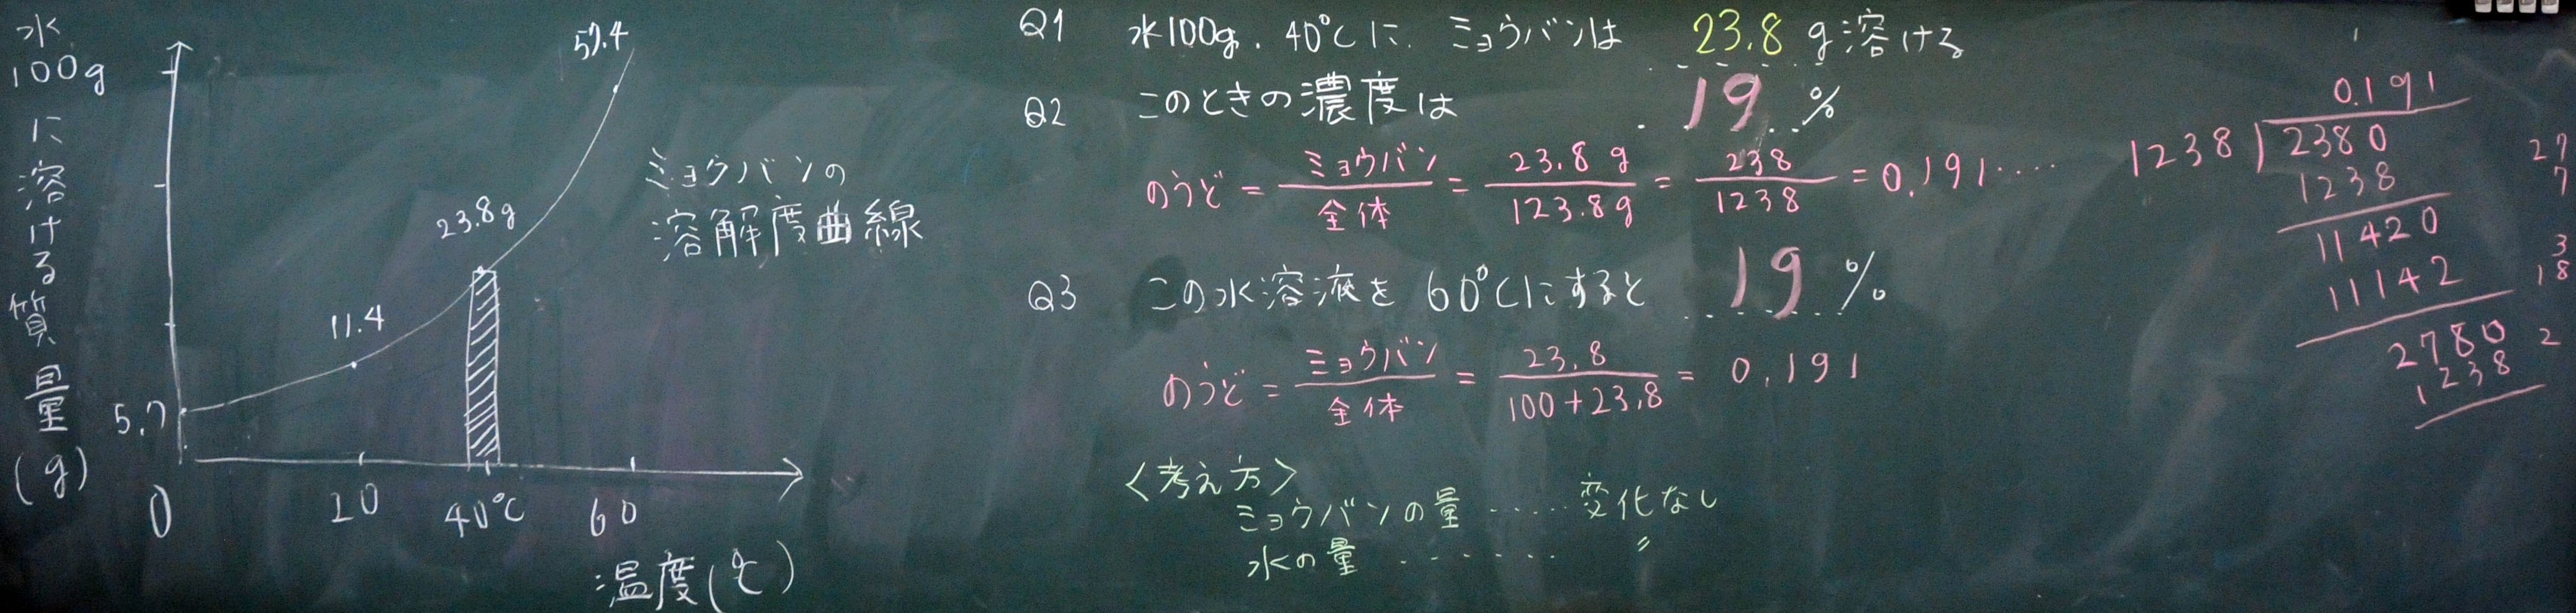 水100gに溶ける質量(g)
57.4
23.8g
11.4
5.7
0
20
40℃
60
温度(℃)
ミョウバンの
溶解度曲線
Q1 水100g、40℃に、ミョウバンは 23.8 g溶ける
Q2 このときの濃度は 19 %
のうど = ミョウバン/全体 = 23.8g/123.8g = 238/1238 = 0.191‥‥
Q3 この水溶液を60℃にすると 19 %
のうど = ミョウバン/全体 = 23.8/100+23.8 = 0.191
<考え方>
ミョウバンの量 ‥‥‥ 変化なし
水の量 ‥‥‥‥ 〃
0.191
1238)2380
1238
11420
11142
2780
1238
27
7
3
18
2